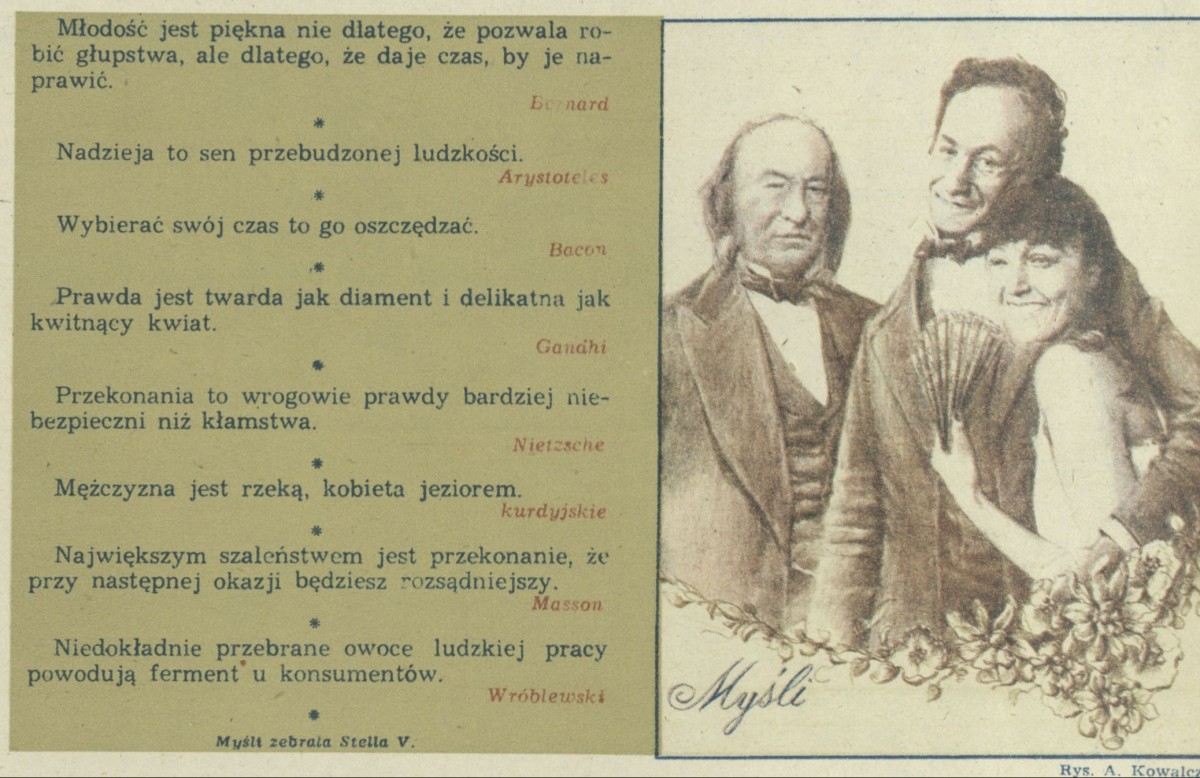 Młodość jest piękna nie dlatego, że pozwala ro-
bić głupstwa, ale dlatego, że daje czas, by je na-
prawić.
Bernard
*
Nadzieja to sen przebudzonej ludzkości.
Arystoteles
*
Wybierać swój czas to go oszczędzać.
Bacon
*
Prawda jest twarda jak diament i delikatna jak
kwitnący kwiat.
Gandhi
*
Przekonania to wrogowie prawdy bardziej nie-
bezpieczni niż kłamstwa.
Nietzsche
*
Mężczyzna jest rzeką, kobieta jeziorem.
kurdyjskie
*
Największym szaleństwem jest przekonanie, że
przy następnej okazji będziesz rozsądniejszy.
Masson
*
Niedokładnie przebrane owoce ludzkiej pracy
powodują ferment u konsumentów.
Wróblewski
*
Myśli zebrała Stella V.
Myśli
Rys. A. Kowalcz